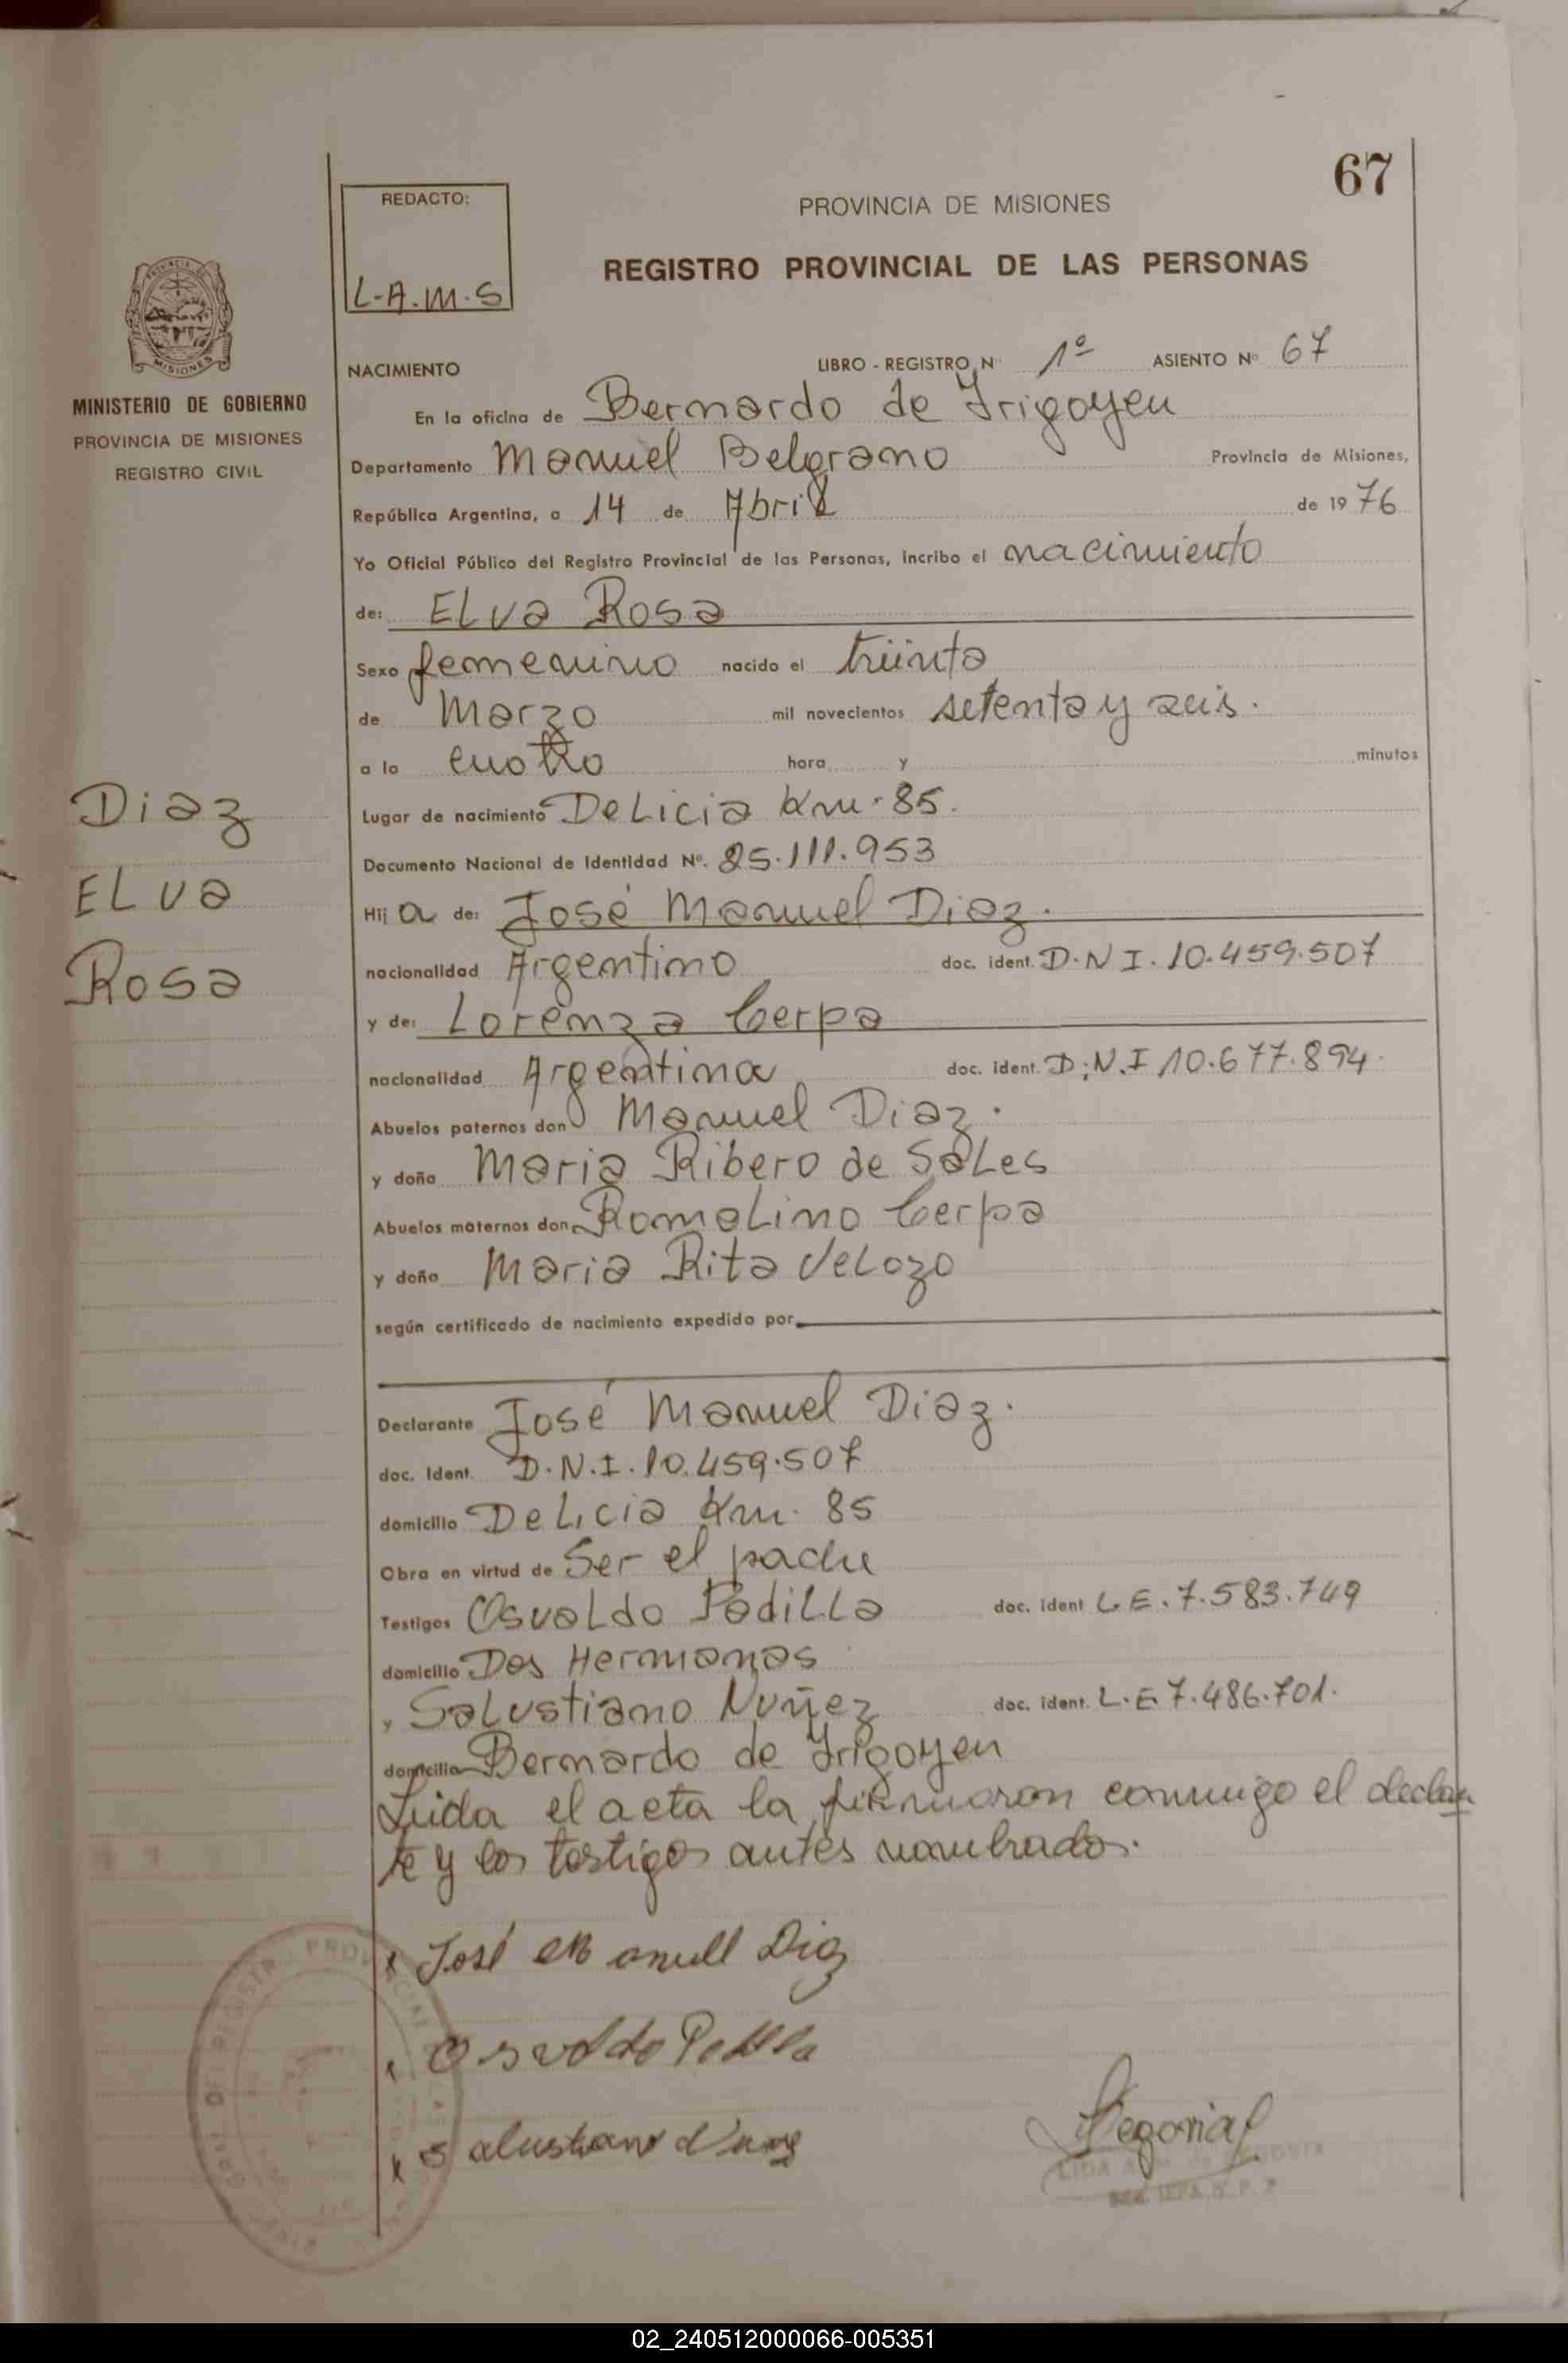 67
REDACTO:
L-A.M.S
PROVINCIA DE MISIONES
REGISTRO PROVINCIAL DE LAS PERSONAS
MISIONES
MINISTERIO DE GOBIERNO
PROVINCIA DE MISIONES
REGISTRO CIVIL
NACIMIENTO LIBRO - REGISTRO N° 1º ASIENTO Nº 67
En la oficina de Bernardo de Irigoyen
Departamento Manuel Belgrano Provincia de Misiones,
República Argentina, a 14 de Abril de 1976
Yo Oficial Público del Registro Provincial de las Personas, incribo el nacimiento
de: ELva Rosa
Sexo femenino nacido el triinta
de Marzo mil novecientos setenta y seis.
a la cuatro hora y minutos
Lugar de nacimiento DeLicia Km. 85.
Documento Nacional de Identidad Nº. 25.111.953
Hij a de: José Manuel Diaz.
nacionalidad Argentino doc. ident. D.N I. 10.459.507
y de: Lorenza Cerpa
nacionalidad Argentina doc. ident. D.N.I 10.677.894.
Abuelos paternos don Manuel Diaz.
y doña Maria Ribero de SaLes
Abuelos maternos don RomaLino Cerpa
y doña Maria Rita VeLozo
según certificado de nacimiento expedido por
Declarante José Manuel Diaz.
doc. Ident. D.N.I. 10.459.507
domicilio DeLicia Km. 85
Obra en virtud de Ser el padre
Testigos OsvaLdo PadiLLa doc. ident L.E. 7.583.749
domicilio Dos Hermanas
y SaLustiano Nuñez doc. ident. L.E 7.486.701.
domicilio Bernardo de Irigoyen
Leida el acta la firmaron conmigo el declaran
te y los testigos antes nombrados.
Diaz
ELva
Rosa
x José M anuell Diaz
x Osvaldo Padilla
x Salustiano Nuñez
02_240512000066-005351